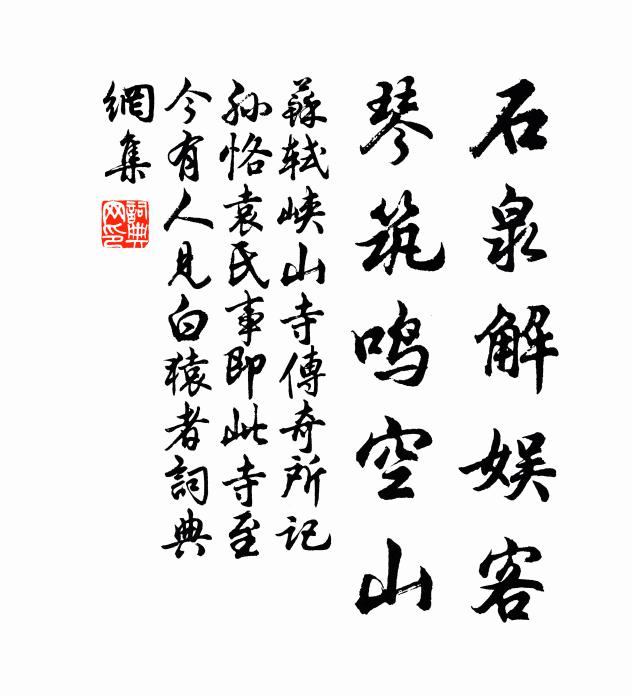 石泉解娱客
琴筑鸣空山
蘇軾峡山寺傳奇所记
孙恪袁氏事即此寺至
今有人见白猿者詞典
網集
詞典
网印